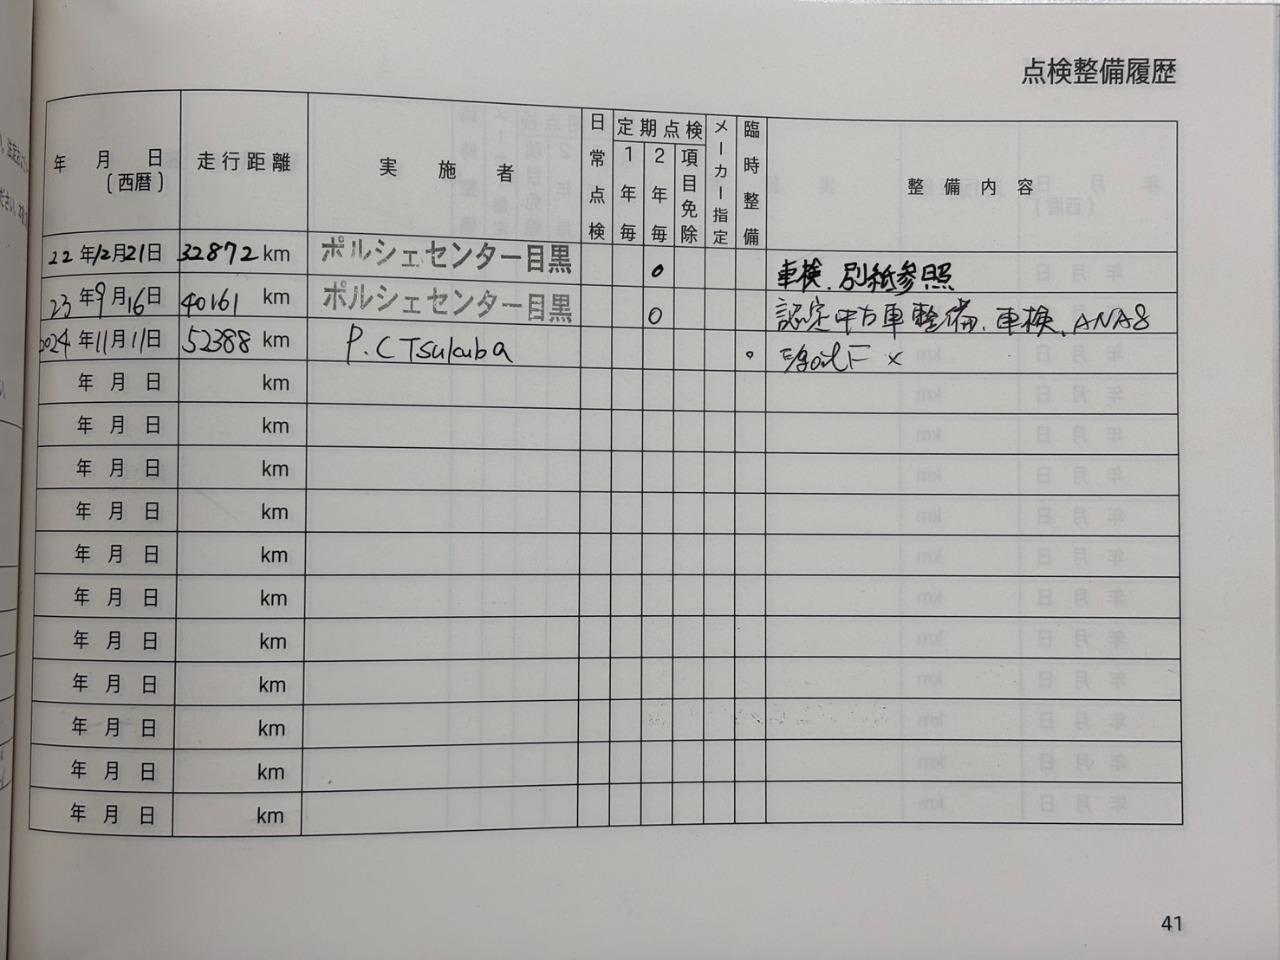 点検整備履歴
年 月 日
(西暦)
走行距離
実施者
日常点検
定期点検
1年毎
2年毎
項目免除
メーカー指定
臨時整備
整備内容
22年12月21日 32872 km ポルシェセンター目黒 o 車検、別紙参照
23年9月16日 40161 km ポルシェセンター目黒 o 認定中古車整備、車検、ANA8
2024年11月11日 52388 km P.C Tsukuba o
年 月 日 km
年 月 日 km
年 月 日 km
年 月 日 km
年 月 日 km
年 月 日 km
年 月 日 km
年 月 日 km
年 月 日 km
年 月 日 km
年 月 日 km
41